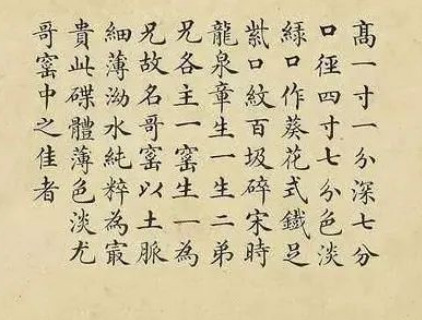 髙一寸一分深七分
口徑四寸七分色淡
緑口作葵花式鐵足
紫口紋百圾碎宋時
龍泉章生一生二弟
兄各主一窰生一為
兄故名哥窰以土脈
細薄泑水純粹為㝡
貴此碟體薄色淡尤
哥窰中之佳者